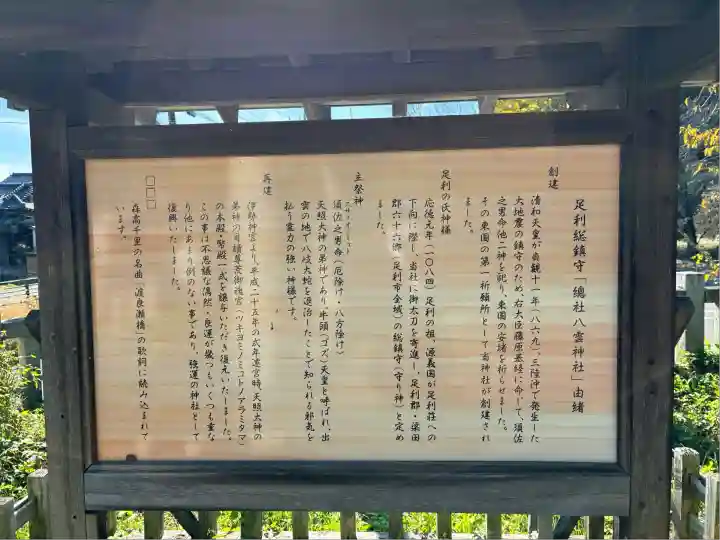 足利総鎮守「總社八雲神社」由緒
創建
清和天皇が貞観十一年(八六九)、三陸沖で発生した
大地震の鎮守のため、右大臣藤原基経に命じて、須佐
之男命他二神を祀り、東国の安緒を祈らせました。
その東国の第一祈願所として当神社が創建され
ました。
足利の氏神様
応徳元年(一〇八四)足利の祖、源義国が足利荘への
下向に際し、当社に御太刀を寄進し、足利郡・梁田
郡六十六郷(足利市全域)の総鎮守(守り神)と定め
ました。
主祭神
須佐之男命(厄除け・八方除け)
天照大神の弟神であり、牛頭(ゴズ)天皇と呼ばれ、出
雲の地で八岐大蛇を退治したことで知られる邪気を
払う霊力の強い神様です。
再建
伊勢神宮より、平成二十五年の式年遷宮時、天照大神の
弟神の月讀尊荒御魂宮(ツキヨミノミコトノアラミタマ)
の本殿・幣殿一式を譲与いただき復元いたしました。
この事は不思議な偶然・良運が幾つもいくつも重な
り他にあまり例のない事であり、強運の神社として
復興いたしました。
□□□
森高千里の名曲「渡良瀬橋」の歌詞に読み込まれて
います。